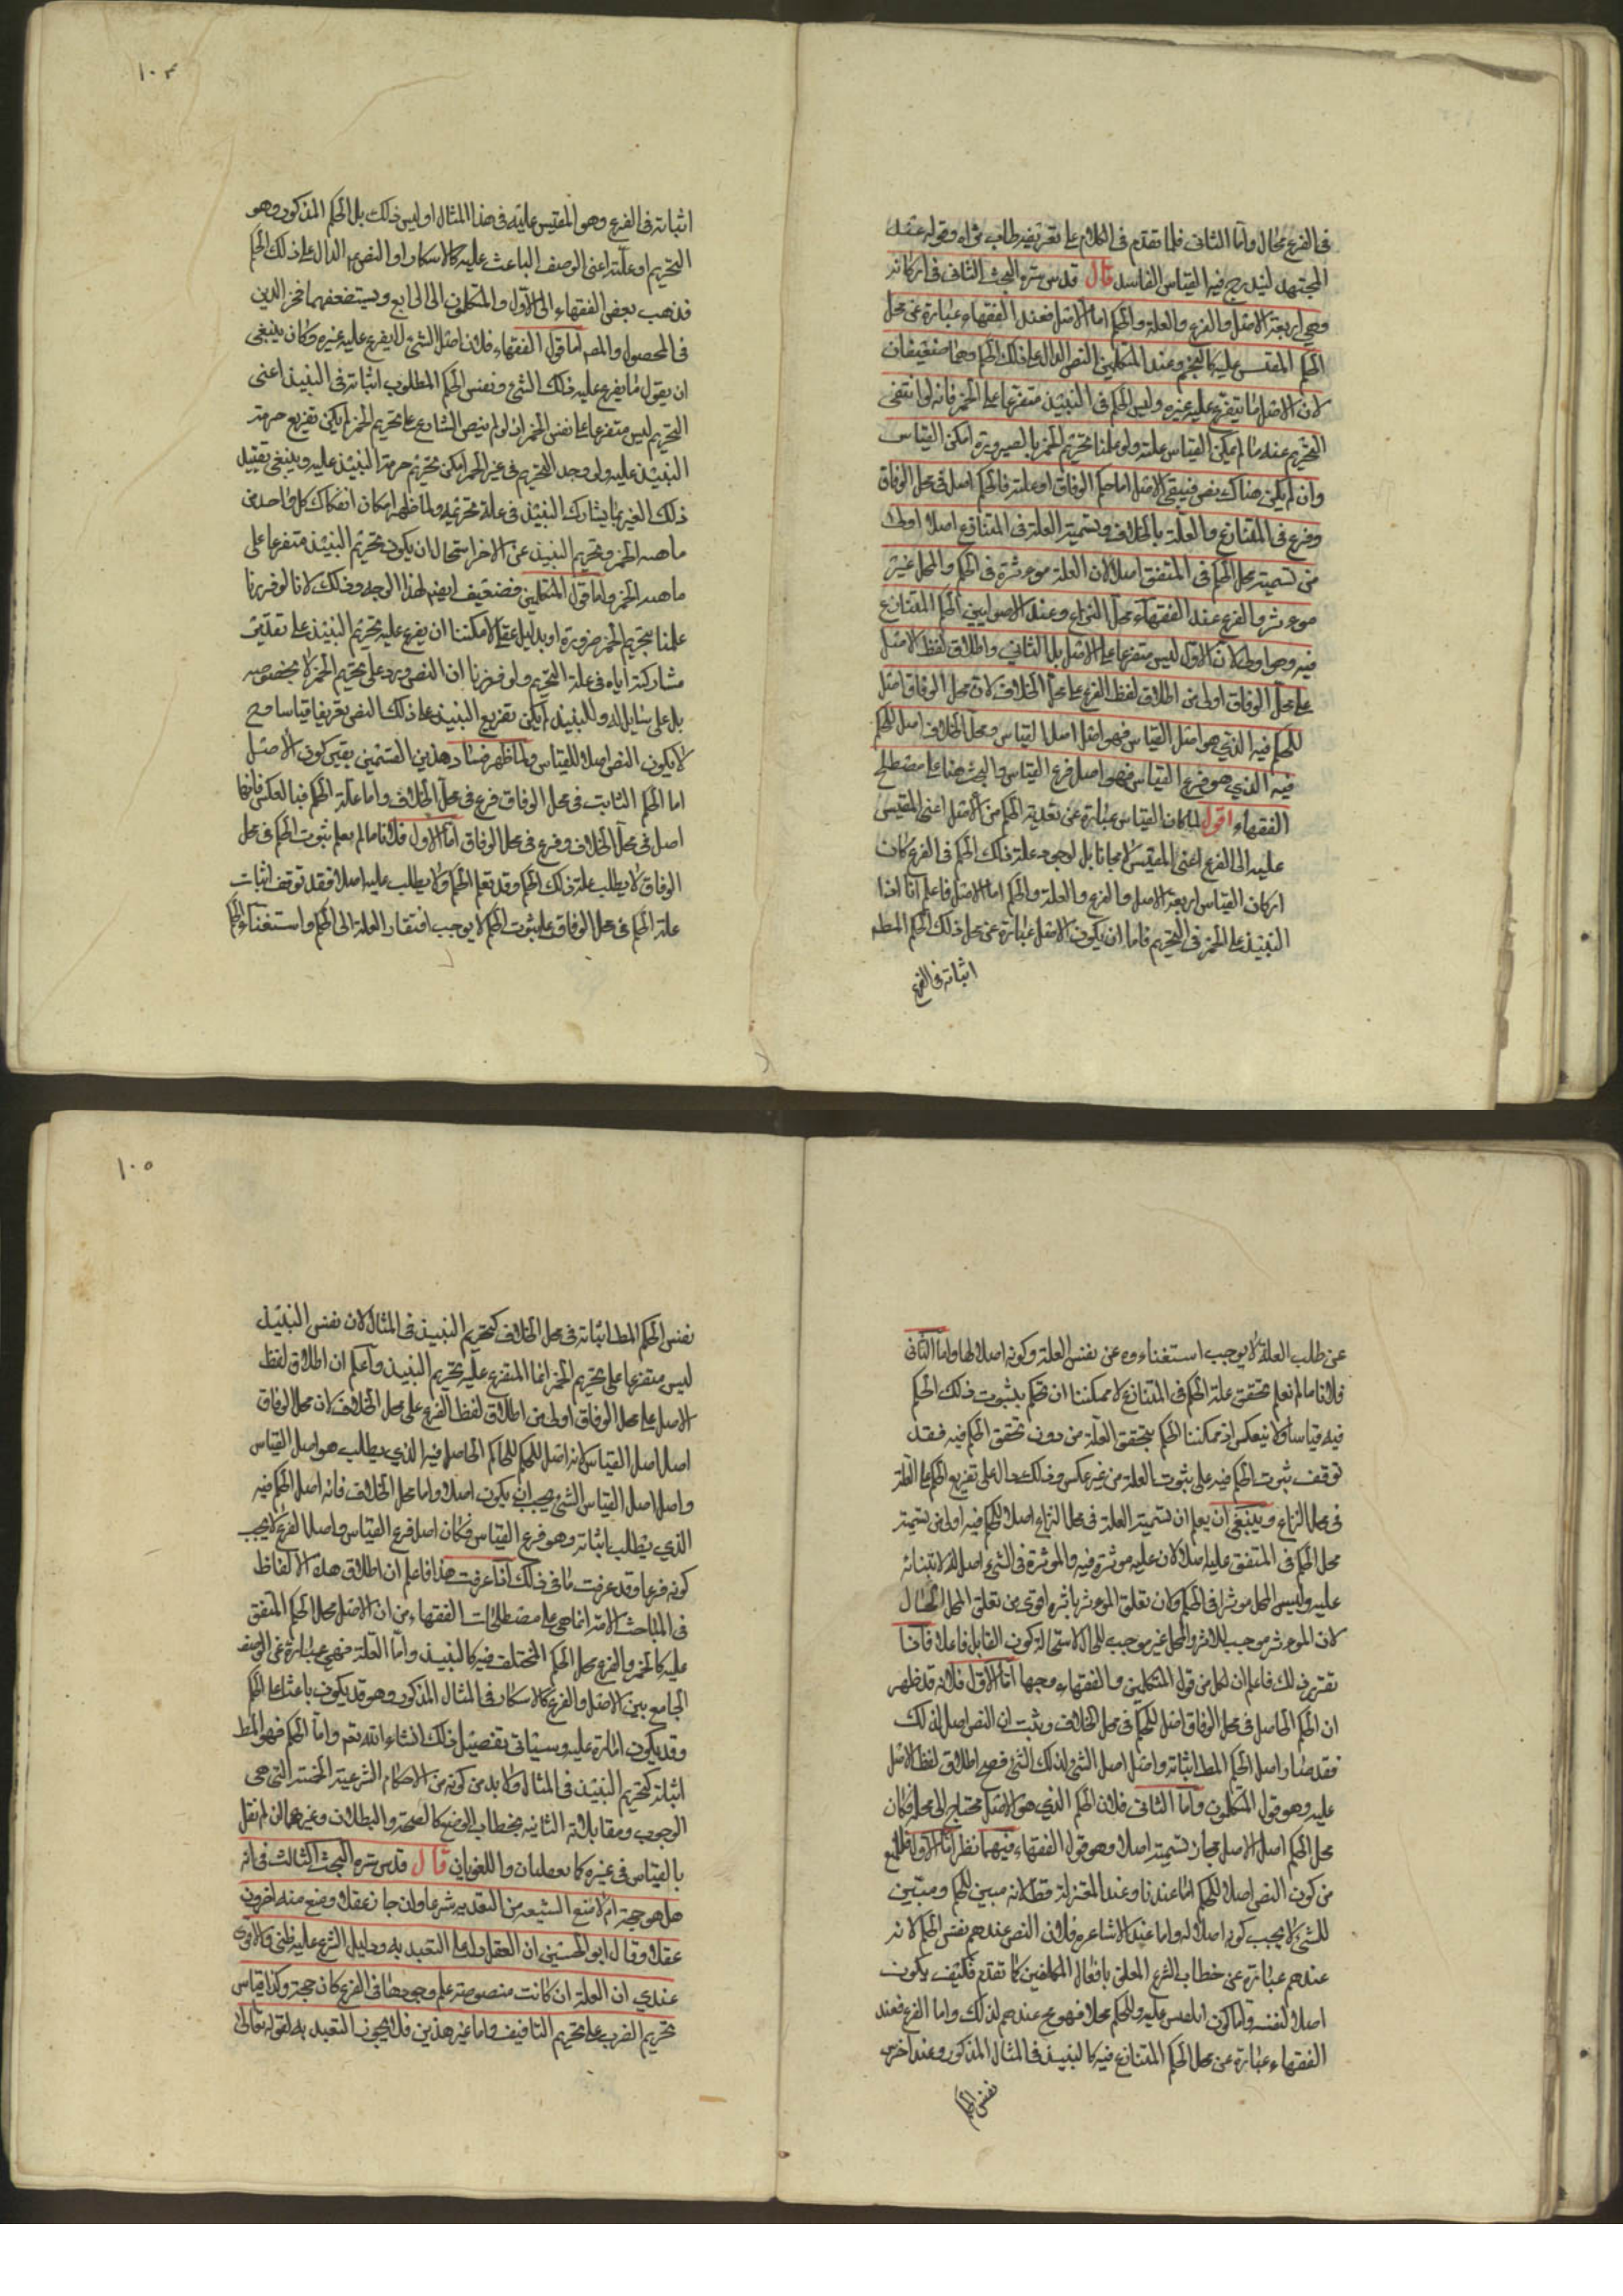 في الفرع محال واما الثاني فلما تقدم في الكلام على تعريفه طاب ثراه وقوله عند
المجتهد ليندرج فيه القياس الفاسد قال قدس سره البحث الثاني في اركانه
وهي اربعة الاصل والفرع والعلة والحكم اما الاصل فعند الفقهاء عبارة عن محل
الحكم المقيس عليه كالخمر وعند المتكلمين النص الدال على ذلك الحكم وهما ضعيفان
لان الاصل ما يتفرع عليه غيره وليس الحكم في النبيذ متفرعا على الخمر فانه لو انتفى
التحريم عنه ما لم يمكن القياس عليه ولو علمنا تحريم الخمر بالضرورة امكن القياس
وان لم يكن هناك نص فيبقى الاصل اما حكم الوفاق او علته فالحكم اصل في محل الوفاق
وفرع في المتنازع والعلة بالخلاف وتسمية العلة في المتنازع اصلا اولى
من تسمية محل الحكم في المتفق اصلا لان العلة موءثرة في الحكم والمحل غير
موءثر والفرع عند الفقهاء محل النزاع وعند الاصوليين الحكم المتنازع
فيه وهو اولى لان الاول ليس متفرعا على الاصل بل الثاني واطلاق لفظ الاصل
على محل الوفاق اولى من اطلاق لفظ الفرع على محل الخلاف لان محل الوفاق اصل
للحكم فيه الذي هو اصل القياس فهو اصل اصل القياس ومحل الخلاف اصل للحكم
فيه الذي هو فرع القياس فهو اصل فرع القياس والبحث هنا على مصطلح
الفقهاء اقول لما كان القياس عبارة عن تعدية الحكم من الاصل اعني المقيس
عليه الى الفرع اعني المقيس لا مجانا بل لوجود علة ذلك الحكم في الفرع كان
اركان القياس اربعة الاصل والفرع والعلة والحكم اما الاصل فاعلم انا اذا
النبيذ على الخمر في التحريم فاما ان يكون الاصل عبارة عن محل ذلك الحكم المط
اثباته في الفرع
١٠٤
اثباته في الفرع وهو المقيس عليه في هذا المثال او ليس ذلك بل الحكم المذكور وهو
التحريم او علته اعني الوصف الباعث عليه كالاسكار او النص الدال على ذلك الحكم
فذهب بعض الفقهاء الى الاول والمتكلمون الى الرابع ويستضعفهما فخر الدين
في المحصول والمص اما قول الفقهاء فلان اصل الشئ لا يفرع عليه غيره وكان ينبغي
ان يقول ما يفرع عليه ذلك الشئ ونفس الحكم المطلوب اثباته في النبيذ اعني
التحريم ليس متفرعا على نفس الخمر اذ لو لم ينص الشارع على تحريم الخمر لم يكن تفريع حرمة
النبيذ عليه ولو وجد التحريم في غير الخمر امكن تحريم حرمة النبيذ عليه وينبغي تقييد
ذلك الغير بما يشارك النبيذ في علة تحريمه ولما ظهر امكان انفكاك كل واحد من
ماهية الخمر وتحريم النبيذ عن الاخر استحال ان يكون تحريم النبيذ متفرعا على
ماهية الخمر واما قول المتكلمين فضعيف ايضا لهذا الوجه وذلك لانا لو فررنا
علمنا بتحريم الخمر ضرورة او بدليل عقلي لامكننا ان يفرع عليه تحريم النبيذ على تقدير
مشاركته اياه في علة التحريم ولو فرضنا ان النص ورد على تحريم الخمر لا بخصوصه
بل على شامل له وللنبيذ لم يكن تفريع النبيذ على ذلك النص تفريعا قياسا وح
لا يكون النص اصلا للقياس ولما ظهر فساد هذين القسمين بقي كون الاصل
اما الحكم الثابت في محل الوفاق فرع في محل الخلاف واما علة الحكم فبالعكس فانها
اصل في محل الخلاف وفرع في محل الوفاق اما الاول فلانا ما لم نعلم ثبوت الحكم في محل
الوفاق لا يطلب علة ذلك الحكم وقد نعلم الحكم ولا يطلب عليه اصلا فقد توقف اثبات
علة الحكم في محل الوفاق على ثبوت الحكم لا يوجب افتقار العلة الى الحكم واستغناء الحكم
عن طلب العلة لا يوجب استغناءه عن نفس العلة وكونه اصلا لها واما الثاني
فلانا ما لم نعلم تحقق علة الحكم في المتنازع لا يمكننا ان نحكم بثبوت ذلك الحكم
فيه قياسا ولا ينعكس اذ يمكننا الحكم بتحقق العلة من دون تحقق الحكم فيه فقد
توقف ثبوت الحكم فيه على ثبوت العلة من غير عكس وذلك دال على تفريع الحكم على العلة
في محل النزاع وينبغي ان يعلم ان تسمية العلة في محل النزاع اصلا للحكم فيه اولى من تسمية
محل الحكم في المتفق عليه اصلا لان عليه موثرة فيه والموثرة في الشئ اصل له لابتنائه
عليه وليس المحل موثرا في الحكم وكان تعلق الموءثر باثره اقوى من تعلق المحل بالحال
لان الموءثر موجب للاثر والمحل غير موجب للحال لاستحالة كون القابل فاعلا فاذا
تقرر ذلك فاعلم ان لكل من قول المتكلمين والفقهاء وجها اما الاول فلانه قد ظهر
ان الحكم الحاصل في محل الوفاق اصل للحكم في محل الخلاف وثبت ان النص اصل لذلك
فقد صار اصل الحكم المط اثباته واصل اصل الشئ لذلك الشئ فصح اطلاق لفظ الاصل
عليه وهو قول المتكلمون واما الثاني فلان الحكم الذي هو الاصل محتاج الى محل فكان
محل الحكم اصل الاصل فجاز تسميته اصلا وهو قول الفقهاء وفيهما نظر اما الاول فللمنع
من كون النص اصلا للحكم اما عندنا وعند المعتزلة فقط لانه مبين للحكم ومبين
للشئ لا يجب كونه اصلا له واما عند الاشاعرة فلان النص عندهم نفس الحكم لانه
عندهم عبارة عن خطاب الشرع المعلق بافعال المكلفين كما تقدم فكيف يكون
اصلا لنفسه واما كون المقيس عليه وللحكم محلا فهو مح عندهم لذلك واما الفرع فعند
الفقهاء عبارة عن محل الحكم المتنازع فيه كالنبيذ في المثال المذكور وعند اخرين
نفس الحكم
١٠٥
نفس الحكم المط اثباته في محل الخلاف كتحريم النبيذ في المثال لان نفس النبيذ
ليس متفرعا على تحريم الخمر انما المتفرع عليه تحريم النبيذ واعلم ان اطلاق لفظ
الاصل على محل الوفاق اولى من اطلاق لفظ الفرع على محل الخلاف لان محل الوفاق
اصل اصل القياس لانه اصل للحكم الحاصل فيه الذي يطلب هو اصل القياس
واصل اصل القياس الشئ يجب ان يكون اصلا واما محل الخلاف فانه اصل الحكم فيه
الذي يطلب اثباته وهو فرع القياس فكان اصل فرع القياس واصل الفرع لا يجب
كونه فرعا وقد عرفت ما في ذلك اذا عرفت هذا فاعلم ان اطلاق هذه الالفاظ
في المباحث الاتية انما هي على مصطلحات الفقهاء من ان الاصل محل الحكم المتفق
عليه كالخمر والفرع محل الحكم المختلف فيه كالنبيذ واما العلة فهي عبارة عن الوصف
الجامع بين الاصل والفرع كالاسكار في المثال المذكور وهو قد يكون باعثا على الحكم
وقد يكون امارة عليه وسيأتي تفصيل ذلك انشاء الله تع واما الحكم فهو المط
اثباته كتحريم النبيذ في المثال ولا بد من كونه من الاحكام الشرعية الخمسة التي هي
الوجوب ومقابلاته الثانية بخطاب الوضع كالصحة والبطلان وغيرهما ان لم نقل
بالقياس في غيره كالعقليات واللغويات قال قدس سره البحث الثالث في انه
هل هو حجة ام لا منع الشيعه من التعبد به شرعا وان جاز عقلا ومنع منه اخرون
عقلا وقال ابو الحسين ان العقل دل على التعبد به ودليل الشرع عليه ظني والاقوى
عندي ان العلة ان كانت منصوصة وعلم وجودها في الفرع كان حجة وكذا قياس
تحريم الضرب على تحريم التافيف واما غير هذين فلا يجوز التعبد به لقوله تعالى